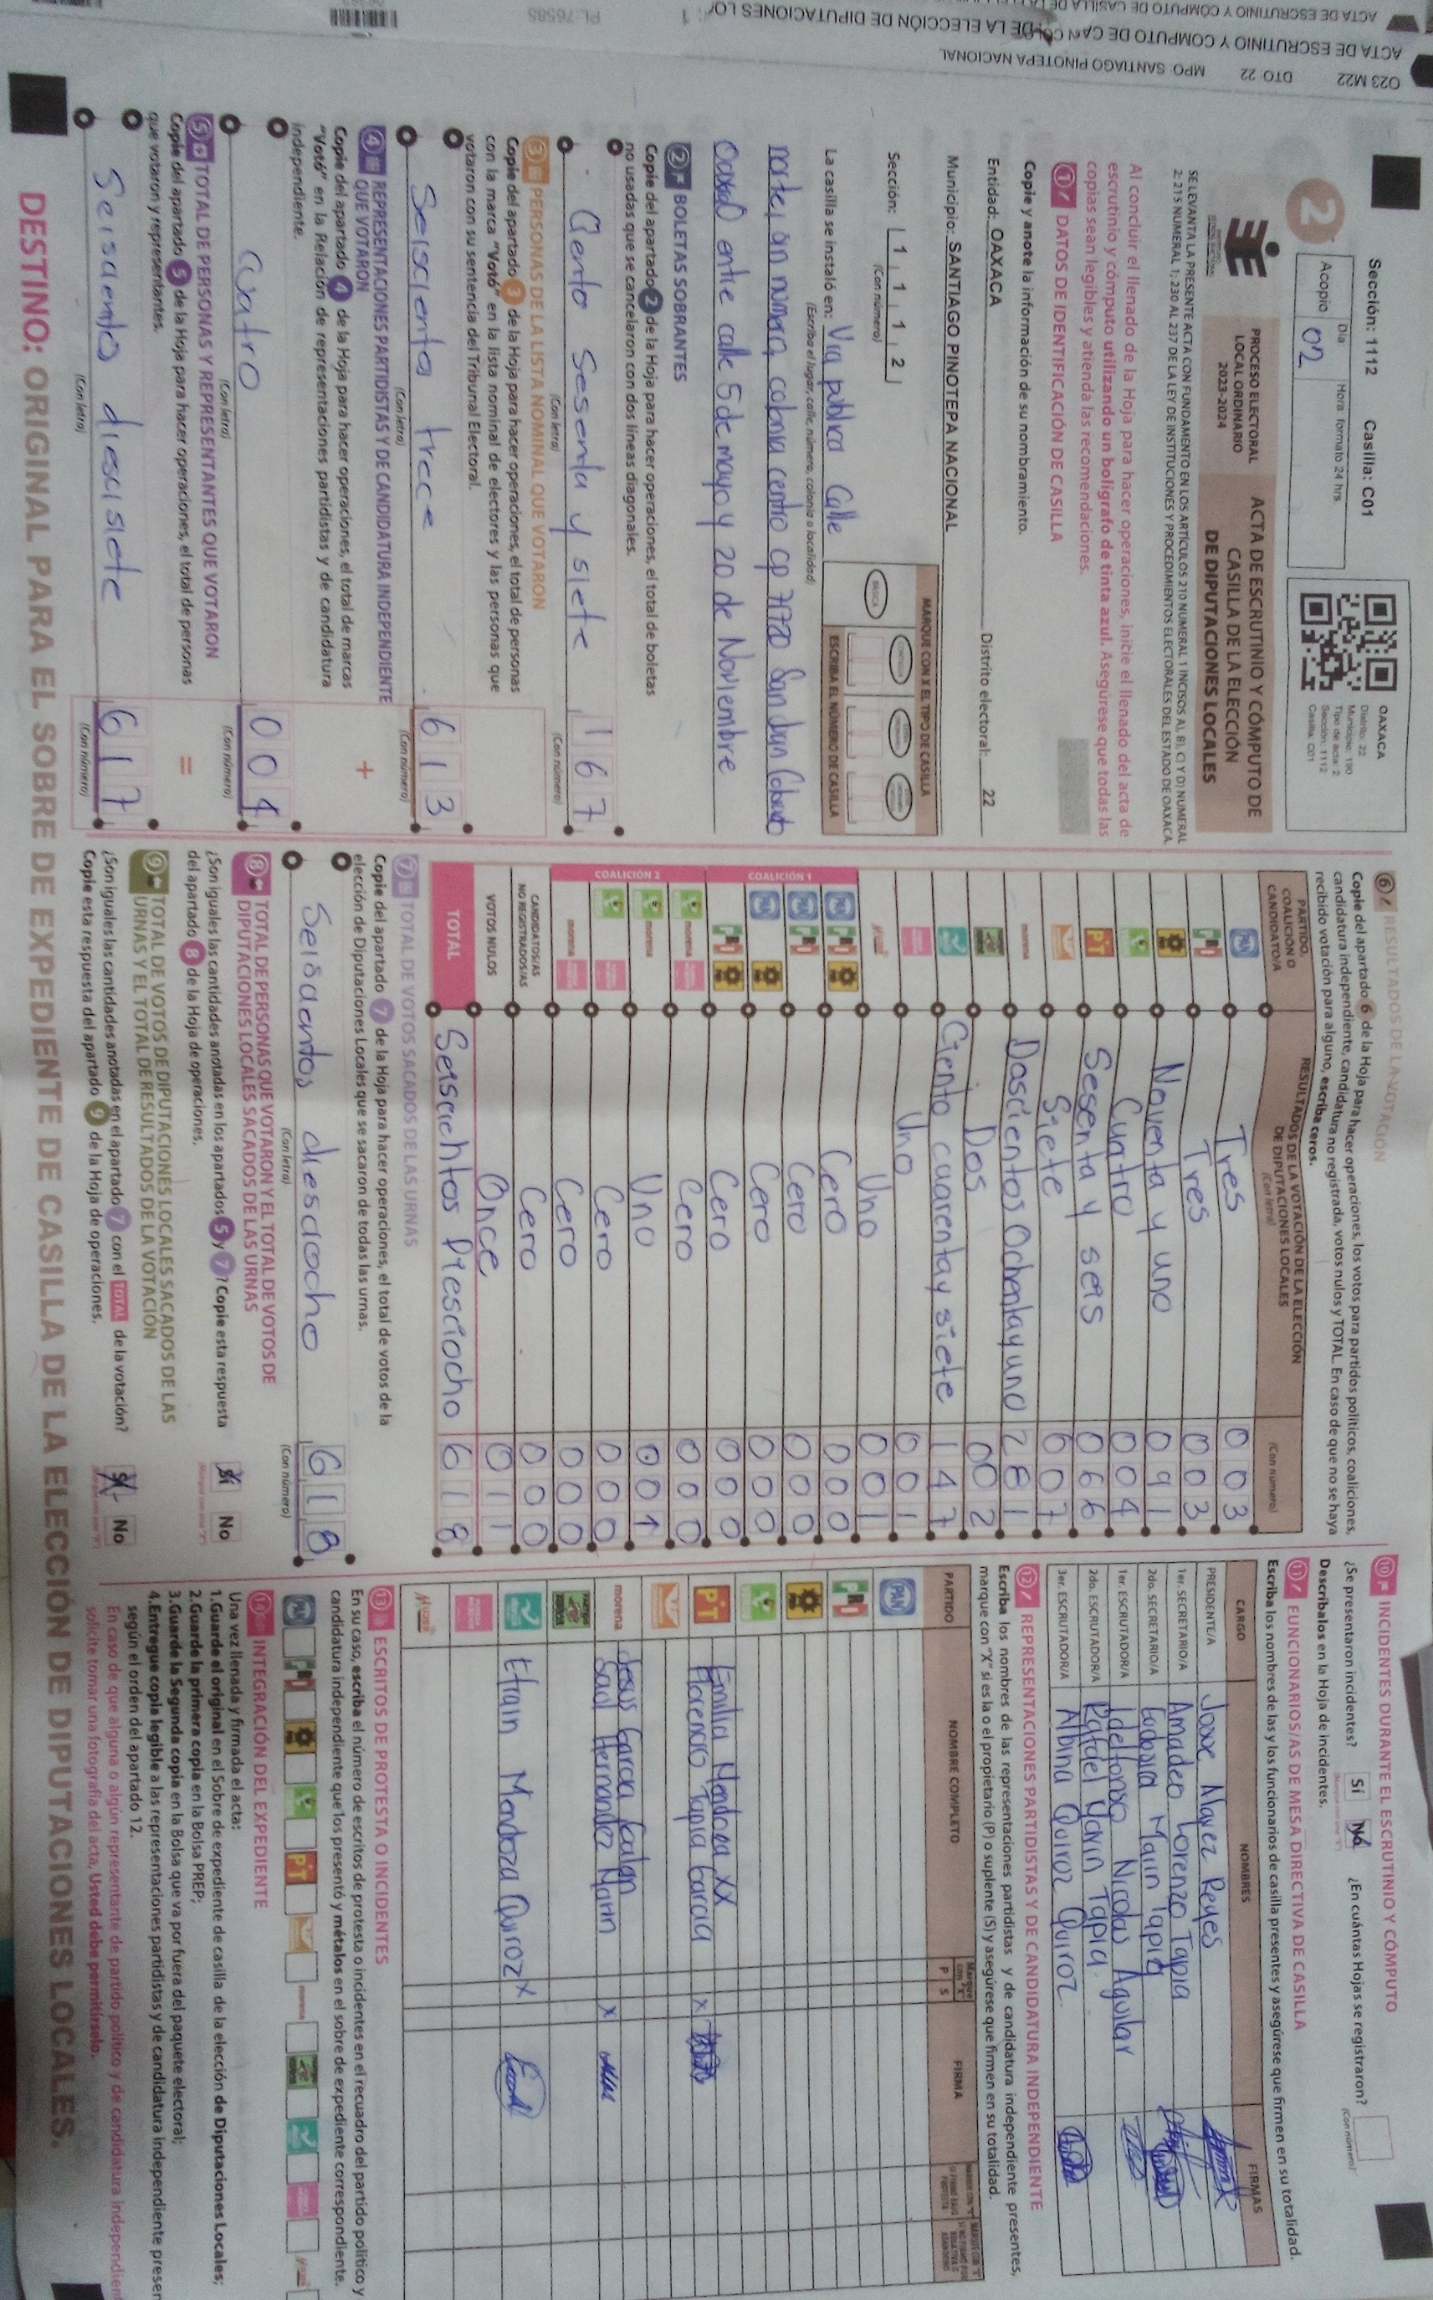 ACTA DE ESCRUTINIO Y CÓMPUTO DE CASILLA DE LA
ACTA DE ESCRUTINIO Y CÓMPUTO DE CASILLA DE LA ELECCIÓN DE DIPUTACIONES LOC
023 M22 DTO. 22 MPO. SANTIAGO PINOTEPA NACIONAL
PL:76585
Sección: 1112 Casilla: C01
2
Día Hora: formato 24 hrs.
Acopio 02
OAXACA
Distrito: 22
Municipio: 190
Tipo de acta: 2
Sección: 1112
Casilla: C01
PROCESO ELECTORAL
LOCAL ORDINARIO
2023-2024
ACTA DE ESCRUTINIO Y CÓMPUTO DE
CASILLA DE LA ELECCIÓN
DE DIPUTACIONES LOCALES
SE LEVANTA LA PRESENTE ACTA CON FUNDAMENTO EN LOS ARTÍCULOS 210 NUMERAL 1 INCISOS A), B), C) Y D) NUMERAL
2; 215 NUMERAL 1; 230 AL 237 DE LA LEY DE INSTITUCIONES Y PROCEDIMIENTOS ELECTORALES DEL ESTADO DE OAXACA.
Al concluir el llenado de la Hoja para hacer operaciones, inicie el llenado del acta de
escrutinio y cómputo utilizando un bolígrafo de tinta azul. Asegúrese que todas las
copias sean legibles y atienda las recomendaciones.
1 DATOS DE IDENTIFICACIÓN DE CASILLA
Copie y anote la información de su nombramiento.
Entidad: OAXACA Distrito electoral: 22
Municipio: SANTIAGO PINOTEPA NACIONAL
Sección: 1 1 1 2
(Con número)
MARQUE CON X EL TIPO DE CASILLA
BÁSICA
ESCRIBA EL NÚMERO DE CASILLA
La casilla se instaló en: Via publica Calle
(Escriba el lugar, calle, número, colonia o localidad)
norte, sin numero, colonia centro cp 71720 San Juan
Oaxaca entre calle 5 de mayo y 20 de Noviembre
2 BOLETAS SOBRANTES
Copie del apartado 2 de la Hoja para hacer operaciones, el total de boletas
no usadas que se cancelaron con dos líneas diagonales.
Ciento Sesenta y siete 167
(Con letra) (Con número)
3 PERSONAS DE LA LISTA NOMINAL QUE VOTARON
Copie del apartado 3 de la Hoja para hacer operaciones, el total de personas
con la marca "Votó" en la lista nominal de electores y las personas que
votaron con su sentencia del Tribunal Electoral.
Seiscientos trece 613
(Con letra) (Con número)
4 REPRESENTACIONES PARTIDISTAS Y DE CANDIDATURA INDEPENDIENTE
QUE VOTARON
Copie del apartado 4 de la Hoja para hacer operaciones, el total de marcas
"Votó" en la Relación de representaciones partidistas y de candidatura
independiente.
+
Cuatro 004
(Con letra) (Con número)
5 TOTAL DE PERSONAS Y REPRESENTANTES QUE VOTARON
Copie del apartado 5 de la Hoja para hacer operaciones, el total de personas
que votaron y representantes.
=
Seisciento diescisiete 617
(Con letra) (Con número)
6 RESULTADOS DE LA VOTACIÓN
Copie del apartado 6 de la Hoja para hacer operaciones, los votos para partidos políticos, coaliciones,
candidatura independiente, candidatura no registrada, votos nulos y TOTAL. En caso de que no se haya
recibido votación para alguno, escriba ceros.
PARTIDO, COALICIÓN O CANDIDATO/A
RESULTADOS DE LA VOTACIÓN DE LA ELECCIÓN DE DIPUTACIONES LOCALES (Con letra)
(Con número)
PAN Tres 003
PRI Tres 003
Noventa y uno 091
Cuatro 004
PT Sesenta y seis 066
Siete 007
morena Doscientos Ochentayuno 281
Dos 002
Ciento cuarentay siete 147
Uno 001
Uno 001
COALICIÓN 1
PAN PRI Cero 000
PAN PRI Cero 000
PAN Cero 000
PRI Cero 000
COALICIÓN 2
morena Cero 000
morena Uno 001
Cero 000
morena Cero 000
CANDIDATOS/AS NO REGISTRADOS/AS Cero 000
VOTOS NULOS Once 011
TOTAL Seiscientos Diesciocho 618
7 TOTAL DE VOTOS SACADOS DE LAS URNAS
Copie del apartado 7 de la Hoja para hacer operaciones, el total de votos de la
elección de Diputaciones Locales que se sacaron de todas las urnas.
Seiscientos diesciocho 618
(Con letra) (Con número)
8 TOTAL DE PERSONAS QUE VOTARON Y EL TOTAL DE VOTOS DE
DIPUTACIONES LOCALES SACADOS DE LAS URNAS
¿Son iguales las cantidades anotadas en los apartados 5 y 7? Copie esta respuesta
del apartado 8 de la Hoja de operaciones.
Sí No
9 TOTAL DE VOTOS DE DIPUTACIONES LOCALES SACADOS DE LAS
URNAS Y EL TOTAL DE RESULTADOS DE LA VOTACIÓN
¿Son iguales las cantidades anotadas en el apartado 7 con el TOTAL de la votación?
Copie esta respuesta del apartado 9 de la Hoja de operaciones.
Sí No
10 INCIDENTES DURANTE EL ESCRUTINIO Y CÓMPUTO
¿Se presentaron incidentes? Sí No ¿En cuántas Hojas se registraron?
(Con número)
Descríbalos en la Hoja de incidentes.
11 FUNCIONARIOS/AS DE MESA DIRECTIVA DE CASILLA
Escriba los nombres de las y los funcionarios de casilla presentes y asegúrese que firmen en su totalidad.
CARGO NOMBRES FIRMAS
PRESIDENTE/A Josue Nayez Reyes
1er. SECRETARIO/A Amadeo Lorenzo Tapia
2do. SECRETARIO/A Marin Tapia
1er. ESCRUTADOR/A Idelfonso Nicolas Aguilar
2do. ESCRUTADOR/A Rafael Marin Tapia
3er. ESCRUTADOR/A Albina Quiroz Quiroz
12 REPRESENTACIONES PARTIDISTAS Y DE CANDIDATURA INDEPENDIENTE
Escriba los nombres de las representaciones partidistas y de candidatura independiente presentes,
marque con "X" si es la o el propietario (P) o suplente (S) y asegúrese que firmen en su totalidad.
PARTIDO NOMBRE COMPLETO P S FIRMA
PAN
PRI
PT Emilia Mendoza XX
Florencio Tapia Garcia X
morena Jesus Garcia
Saul Hernandez Marin X
Efrain Mendoza Quiroz X
13 ESCRITOS DE PROTESTA O INCIDENTES
En su caso, escriba el número de escritos de protesta o incidentes en el recuadro del partido político y
candidatura independiente que los presentó y métalos en el sobre de expediente correspondiente.
PAN PRI PT morena
14 INTEGRACIÓN DEL EXPEDIENTE
Una vez llenada y firmada el acta:
1.Guarde el original en el Sobre de expediente de casilla de la elección de Diputaciones Locales;
2.Guarde la primera copia en la Bolsa PREP;
3.Guarde la Segunda copia en la Bolsa que va por fuera del paquete electoral;
4.Entregue copia legible a las representaciones partidistas y de candidatura independiente presen
según el orden del apartado 12.
En caso de que alguna o algún representante de partido político y de candidatura independien
solicite tomar una fotografía del acta, Usted debe permitírselo.
DESTINO: ORIGINAL PARA EL SOBRE DE EXPEDIENTE DE CASILLA DE LA ELECCIÓN DE DIPUTACIONES LOCALES.